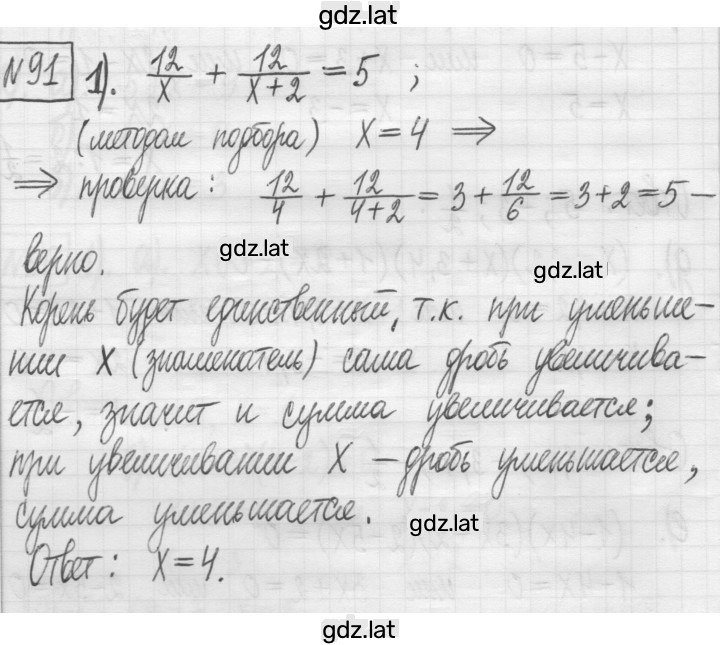 gdz.lat
№91 1). 12/x + 12/(x+2) = 5 ;
(методом подбора) x = 4 ⇒
⇒ проверка: 12/4 + 12/(4+2) = 3 + 12/6 = 3+2 = 5 –
верно.
gdz.lat
gdz.lat
Корень будет единственный, т.к. при уменьше-
нии x (знаменатель) сама дробь увеличива-
ется, значит и сумма увеличивается;
при увеличивании x – дробь уменьшается,
сумма уменьшается.
gdz.lat
Ответ: x = 4.
gdz.lat